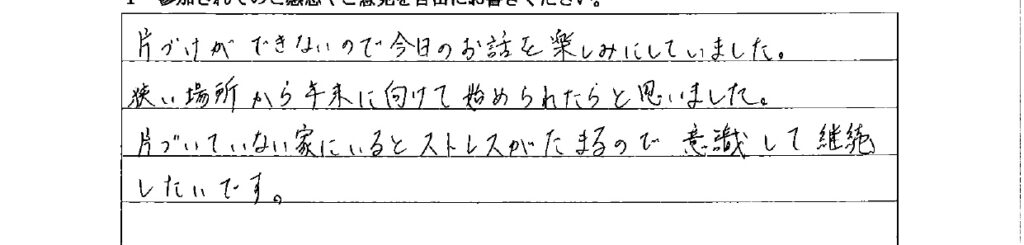 1 参加されてのご感想やご意見を自由にお書きください。
片づけができないので今日のお話を楽しみにしていました。
狭い場所から年末に向けて始められたらと思いました。
片づいていない家にいるとストレスがたまるので意識して継続
したいです。